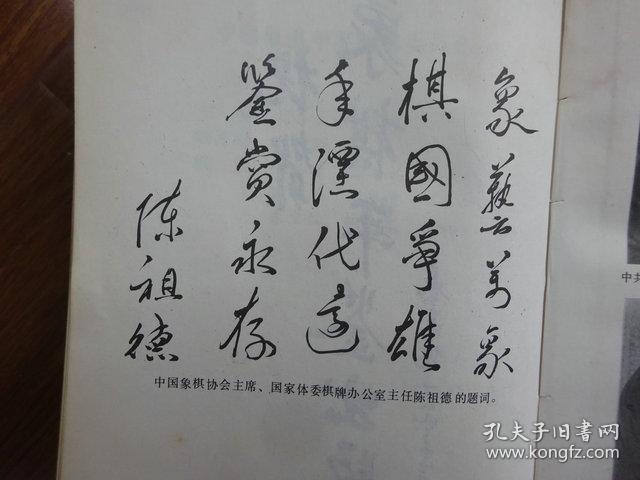 象藝萬象
棋國爭雄
年湮代遠
鑒賞永存
陈祖德
中国象棋协会主席、国家体委棋牌办公室主任陈祖德的题词。
中共
孔夫子旧书网
www.kongfz.com